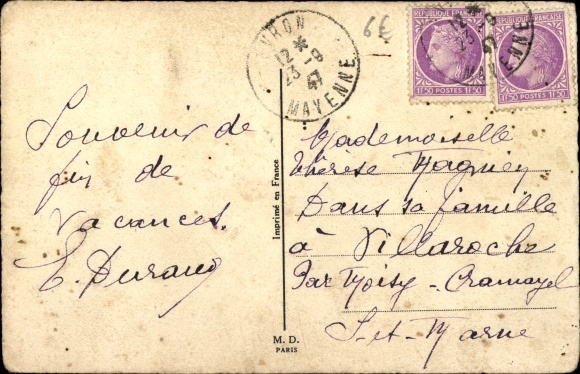 Souvenir de
fin de
vacances.
E. Durand
VRON
12 *
23 -9
47
MAYENNE
6€
RÉPUBLIQUE FRANÇAISE
1F50 POSTES 1F50
RÉPUBLIQUE FRANÇAISE
1F50 POSTES 1F50
MAYENNE
Imprimé en France
M. D.
PARIS
Mademoiselle
Thérèse Magnien
Dans sa famille
à Villaroche
Par Moisy-Cramayel
S-et-Marne